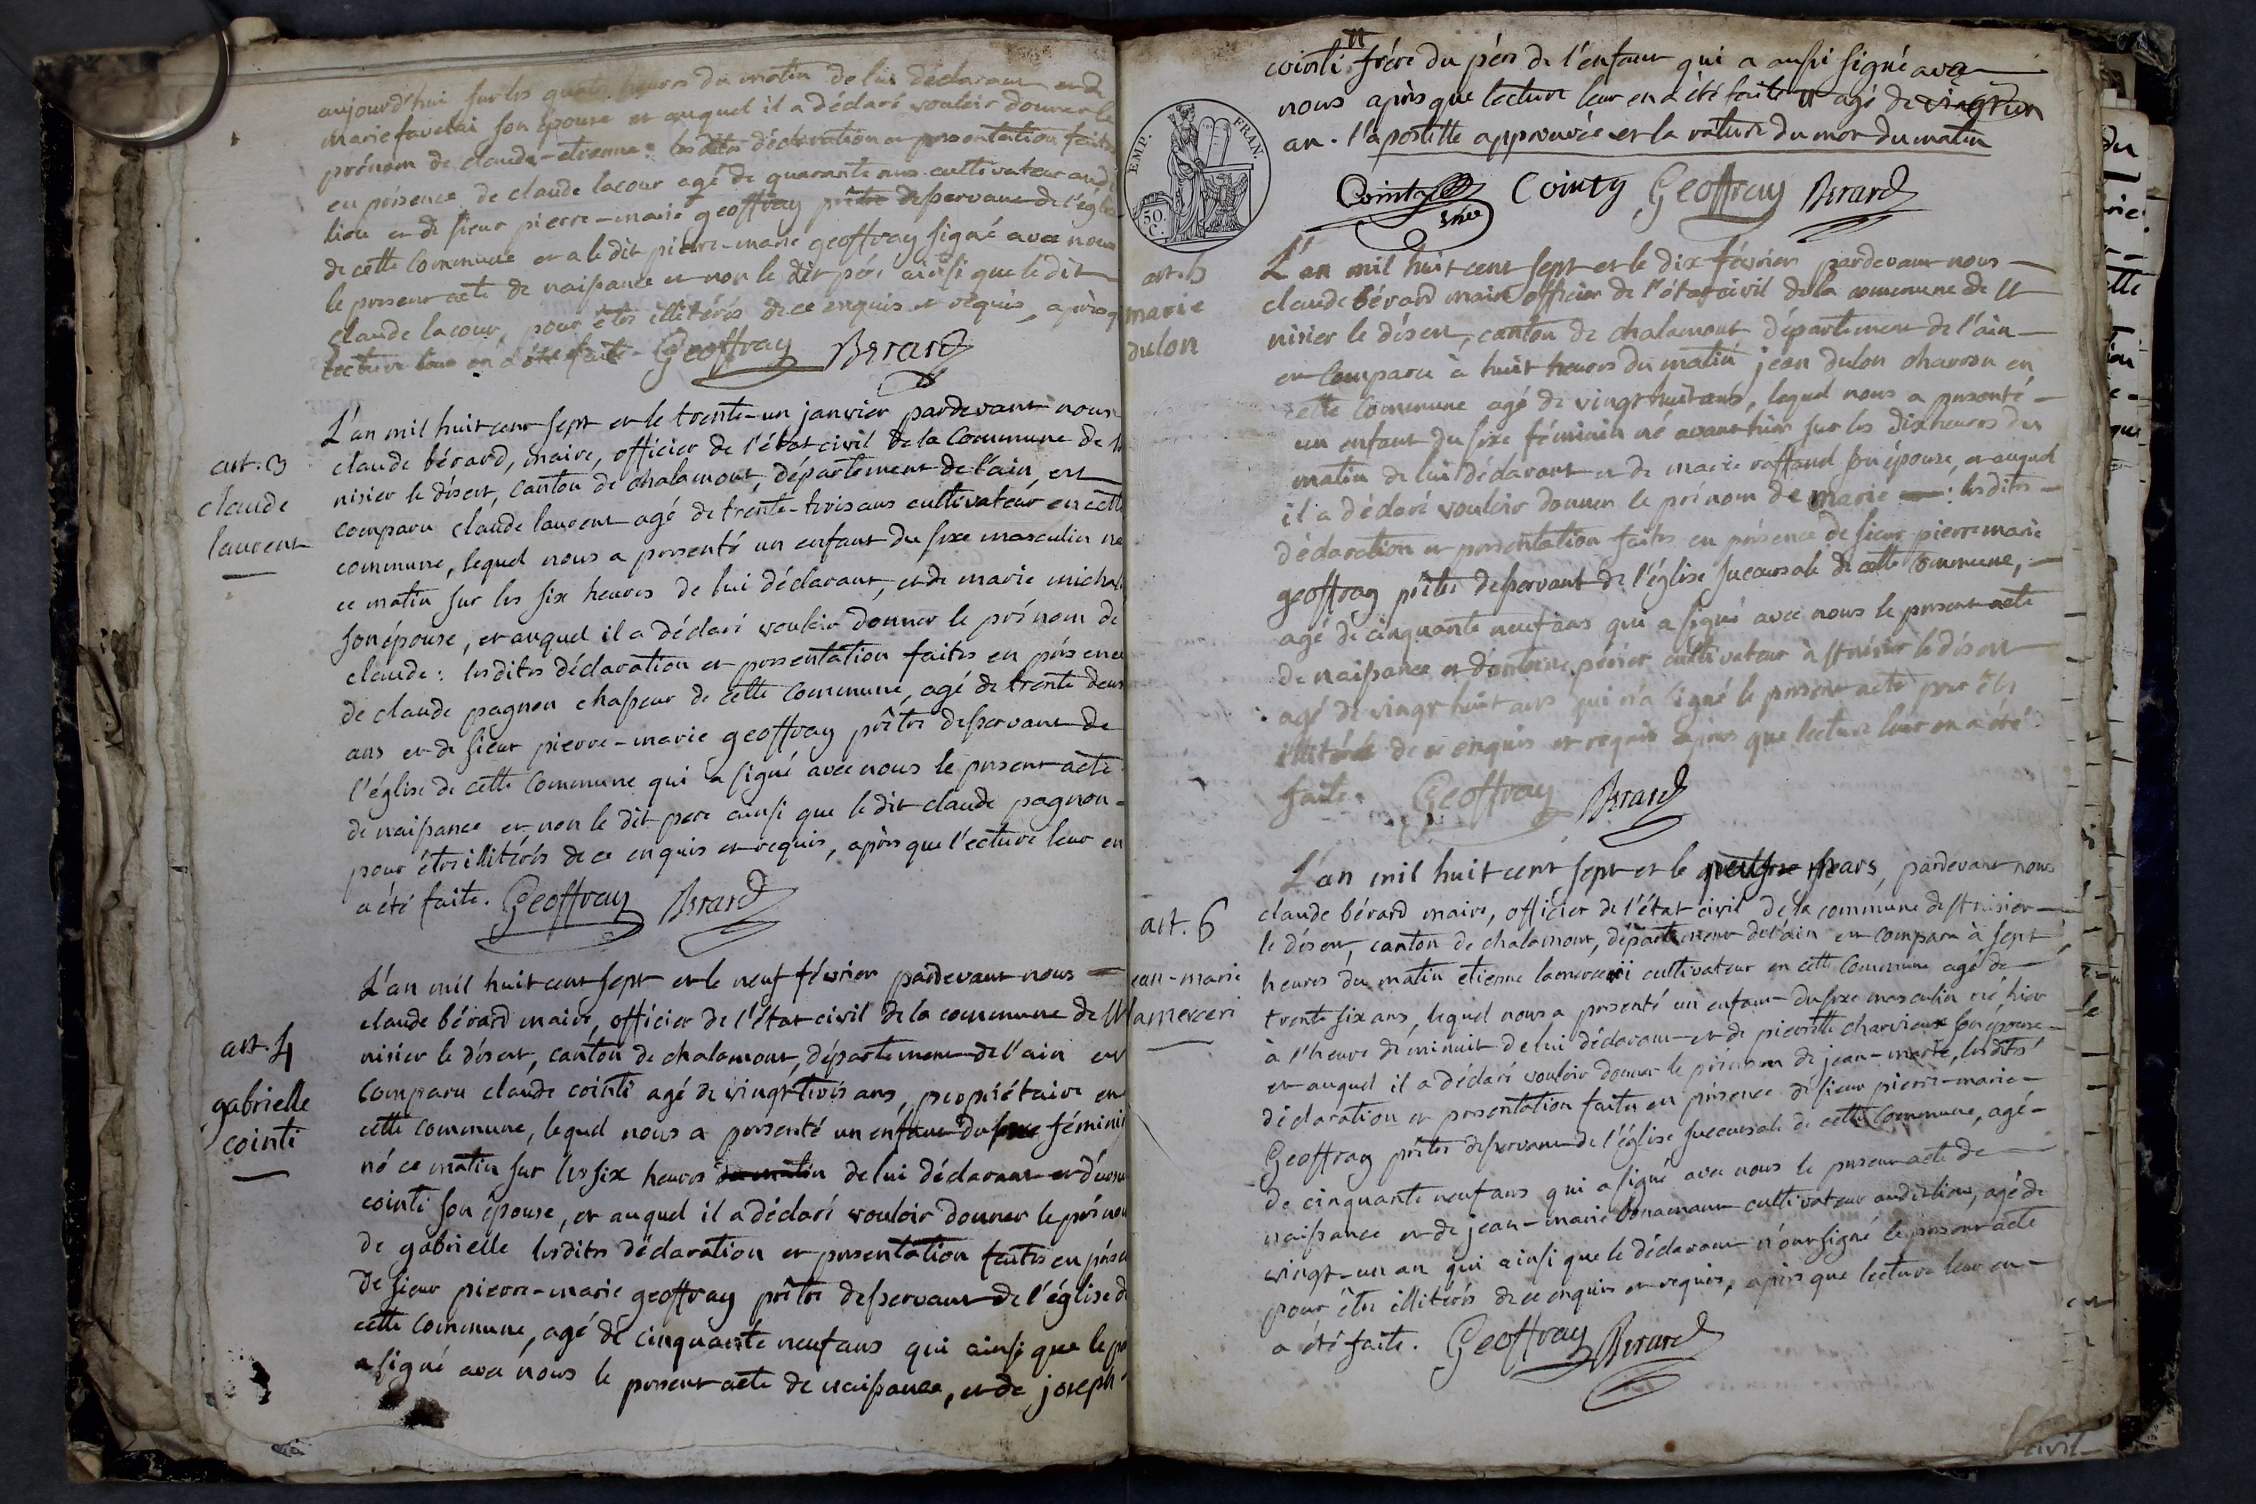 aujourd'hui sur les quatre heures du matin de lui déclarant et de
marie favelai son épouse et auquel il a déclaré vouloir donner le
prénom de claude-etienne: les dites déclaration et presentation faites
en présence de claude lacour agé de quarante ans cultivateur audit
lieu et de sieur pierre-marie geoffray prêtre desservant de l'église
de cette commune et a le dit pierre-marie geoffray signé avec nous
le present acte de naissance et non le dit père ainsi que le dit
claude lacour, pour être illitérés de ce enquis et requis, après q
lecture leur en a été faite. Geoffray Berard
art. 3
claude
laurent
L'an mil huit cent sept et le trente-un janvier pardevant nous
claude bérard, maire, officier de l'état civil de la commune de st
nisier le désert, canton de chalamont, département de l'ain, est
comparu claude laurent agé de trente-trois ans cultivateur en cette
commune, lequel nous a presenté un enfant du sexe masculin né
ce matin sur les six heures de lui déclarant, et de marie micha
son épouse, et auquel il a déclaré vouloir donner le prénom de
claude: les dites déclaration et presentation faites en présence
de claude pagnon chasseur de cette commune, agé de trente deux
ans et de sieur pierre-marie geoffray prêtre desservant de
l'église de cette commune qui a signé avec nous le present acte
de naissance et non le dit pere ainsi que le dit claude pagnon
pour être illitérés de ce enquis et requis, après que l'ecture leur en
a été faite. Geoffray Berard
art. 4
gabrielle
cointi
L'an mil huit cent sept et le neuf février pardevant nous
claude bérard maire, officier de l'état civil de la commune de st
nisier le désert, canton de chalamont, département de l'ain est
comparu claude cointi agé de vingt trois ans, propriétaire en
cette commune, lequel nous a presenté un enfant du sexe féminin
né ce matin sur les six heures du matin de lui déclarant et
cointi son épouse, et auquel il a déclaré vouloir donner le prénom
de gabrielle les dites déclaration et presentation faites en présen
de sieur pierre-marie geoffray prêtre desservant de l'église de
cette commune, agé de cinquante neuf ans qui ainsi que le p
a signé avec nous le present acte de naissance, et de joseph
cointi frére du père de l'enfant qui a aussi signé avec
nous après que lecture leur en a été faite agé de vingt un
an. l'apostille approuvée et la rature du mot du matin
EMP. FRAN.
50 C.
Cointy Cointy Geoffray Berard
art. 5
marie
dulon
L'an mil huit cent sept et le dix février pardevant nous
claude bérard maire officier de l'état civil de la commune de st
nisier le désert, canton de chalamont département de l'ain
est comparu à huit heures du matin jean dulon charron en
cette commune agé de vingt huit ans, lequel nous a presenté
un enfant du sexe féminin né avant hier sur les dix heures du
matin de lui déclarant et de marie raffand son épouse, et auquel
il a déclaré vouloir donner le prénom de marie: les dites
déclaration et presentation faites en présence de sieur pierre marie
geoffray prêtre desservant de l'église succursale de cette commune,
agé de cinquante neuf ans qui a signé avec nous le present acte
de naissance et d'antoine périer cultivateur à st nisier le désert
agé de vingt huit ans qui n'a signé le present acte pour être
illitéré de ce enquis et requis après que lecture leur en a été
faite. Geoffray Berard
art. 6
ean-marie
lamerceri
L'an mil huit cent sept et le mars, pardevant nous
claude bérard maire, officier de l'état civil de la commune de st nisier
le désert, canton de chalamont, département de l'ain est comparu à sept
heures du matin etienne lamerceri cultivateur en cette commune agé de
trente six ans, lequel nous a presenté un enfant du sexe masculin né hier
à l'heure de minuit de lui déclarant et de pierrette charvieux son épouse
et auquel il a déclaré vouloir donner le prénom de jean-marie, les dites
déclaration et presentation faites en présence de sieur pierre-marie
Geoffray prêtre desservant de l'église succursale de cette commune, agé
de cinquante neuf ans qui a signé avec nous le present acte de
naissance et de jean-marie bonamant cultivateur audit lieu, agé de
vingt-un an qui ainsi que le déclarant n'ont signé le present acte
pour être illitérés de ce enquis et requis, après que lecture leur en
a été faite. Geoffray Berard
civil